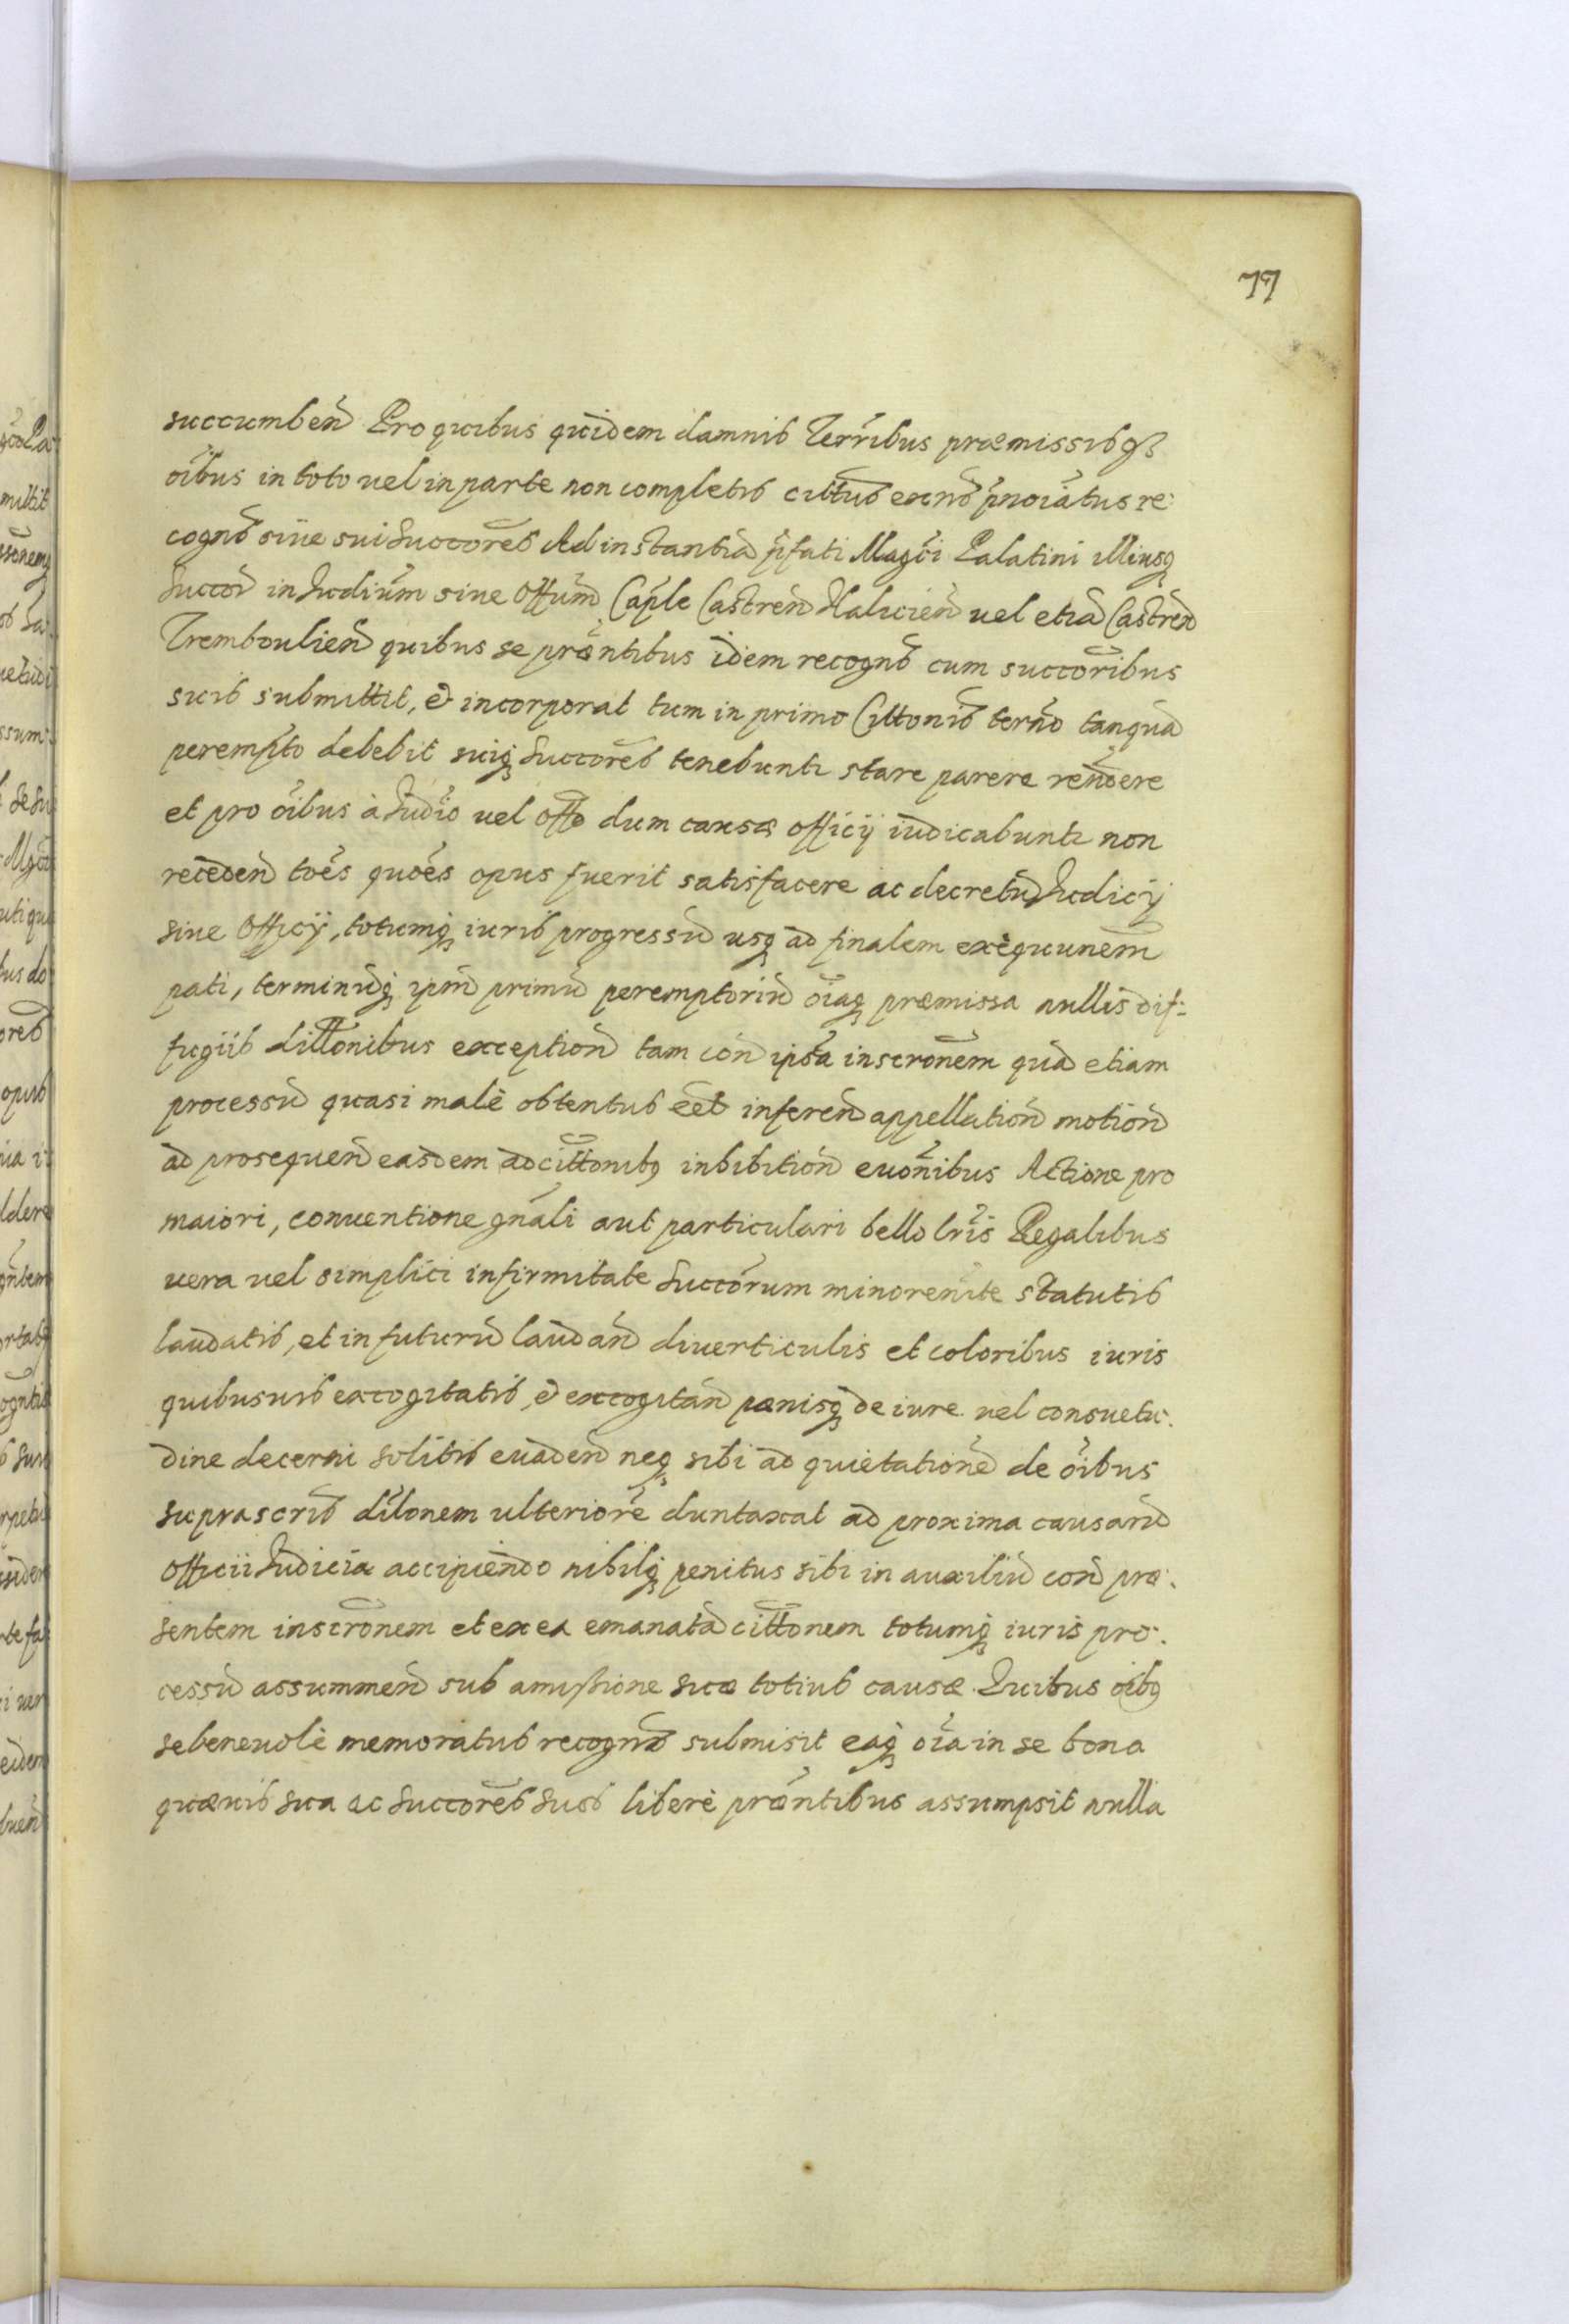 77
succumbeñ Pro quibus quidem damnis Terribus præmissisq3
oibus in toto uel in parte non completis cittus exnc pnoiatus re:
cogns siue sui Succores Ad instantiã pfati Magci Palatini illiusq
Succor in Iudium siue Offum Caple Castreñ Halicieñ uel etiã Castreñ
Tremboulieñ quibus se præntibus idem recogns cum succoribus
suis submittit, et incorporat tum in primo Cittonis termo tanquã
perempto debebit suiq Succores tenebuntr stare parere rendere
et pro oibus à Iudio uel Offo dum causæ officij iudicabuntr non
recedeñ toēs quoēs opus fuerit satisfacere ac decretũ Iudicij
siue Officij, totumq iuris progressũ usq ad finalem exèquunem
pati, terminũq ipm primũ peremptoriũ oiaq præmissa nullis dif:
fugiis dillonibus exceptioñ tam coñ ipsa inscronem quã etiam
processũ quasi malè obtentus eet infereñ appellatioñ motioñ
ad prosequeñ easdem adcittonibq inhibitioñ euonibus Actione pro
maiori, conuentione gnali aut particulari bello lris Regalibus
uera uel simplici infirmitate Succorum minorennite statutis
laudatis, et in futurũ laudañ diuerticulis et coloribus iuris
quibusuis excogitatis, et excogitañ pænisq de iure uel consuetu:
dine decerni solitis euadeñ neq sibi ad quietationẽ de oibus
suprascris dilonem ulteriorẽ duntaxat ad proxima causarũ
officii Iudicia accipiendo nihilq penitus sibi in auxiliũ coñ præ:
sentem inscronem et ex ea emanatã cittonem totumq iuris pro:
cessũ assummeñ sub amißione suæ totius causæ Quibus oibq
se beneuolè memoratus recogns submisit eaq oia in se bona
quæuis sua ac Succores suos liberè præntibus assumpsit nulla